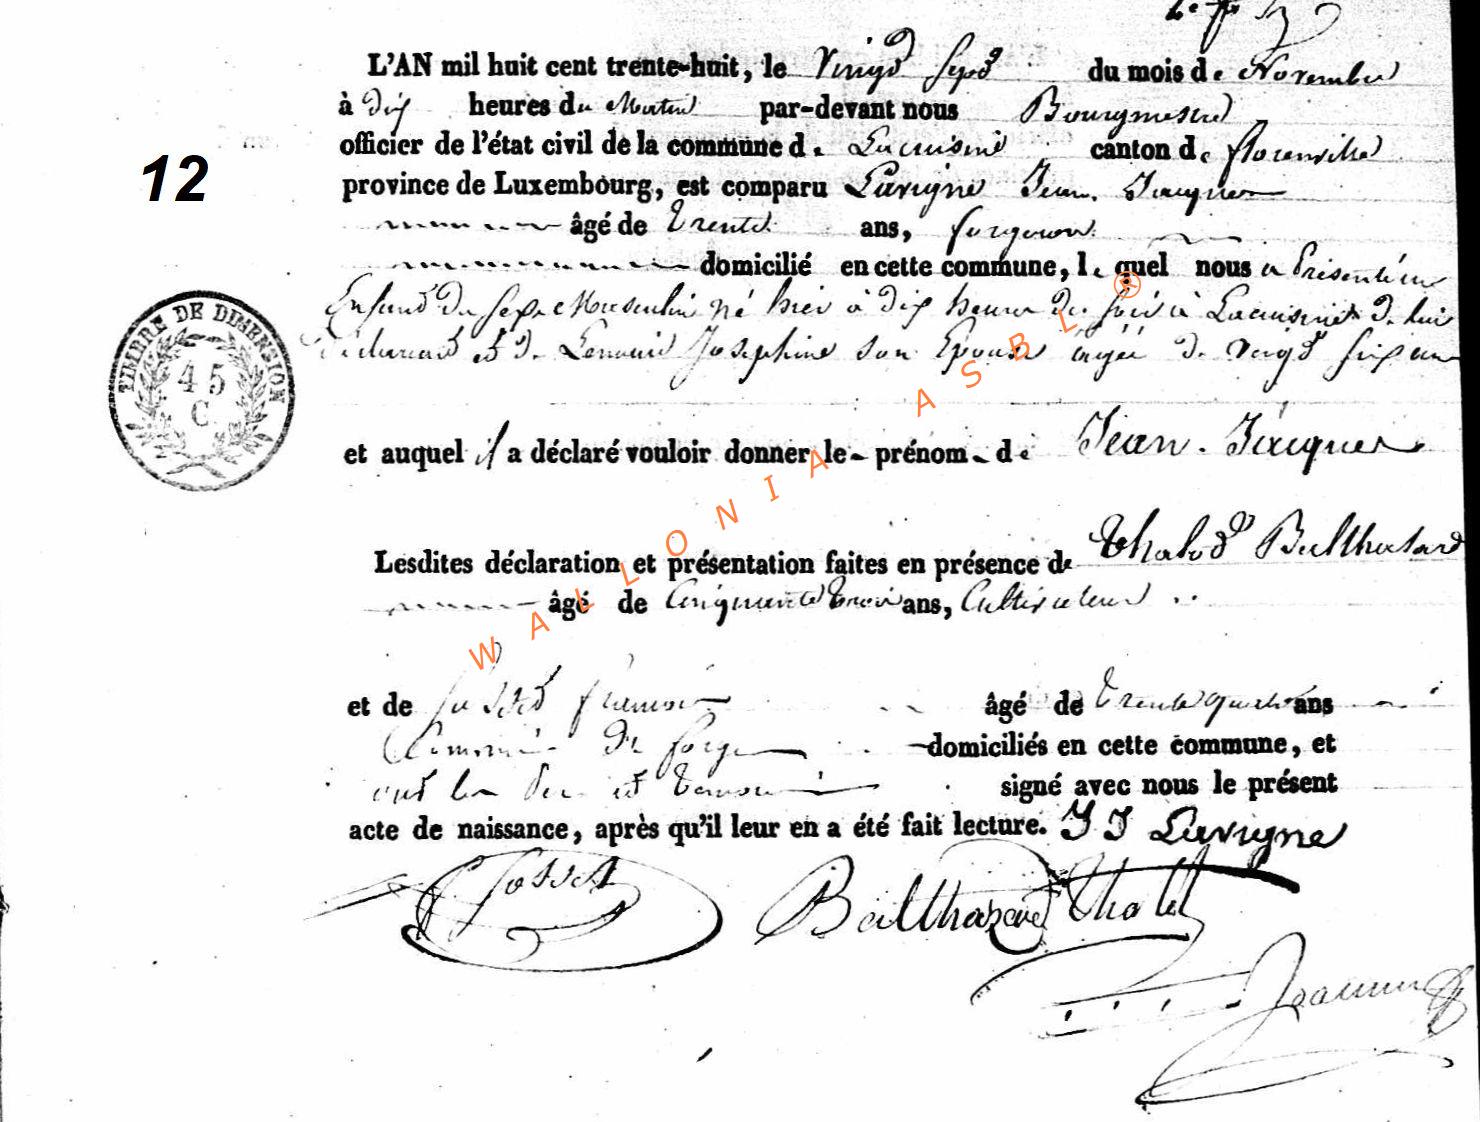 L'AN mil huit cent trente-huit, le Vingt Sept du mois de Novembre
à dix heures du Matin par-devant nous Bourgmestre
officier de l'état civil de la commune de Lacuisine canton de florenville
province de Luxembourg, est comparu Lavigne Jean Jacques
12
âgé de trente ans, forgeron
domicilié en cette commune, lequel nous a présenté un
Enfant du sexe Masculin né hier à dix heures du soir à Lacuisine de lui
déclarant et de Joséphine son Epouse agée de vingt six ans
TIMBRE DE DIMENSION
45
C
et auquel il a déclaré vouloir donner le prénom de Jean-Jacques
Lesdites déclaration et présentation faites en présence de Thalot Balthasard
âgé de Cinquante trois ans, Cultivateur
et de françois âgé de trente quatre ans
de forge domiciliés en cette commune, et
signé avec nous le présent
acte de naissance, après qu'il leur en a été fait lecture. J J Lavigne
Balthasard Thalot
WALLONIA ASBL ®